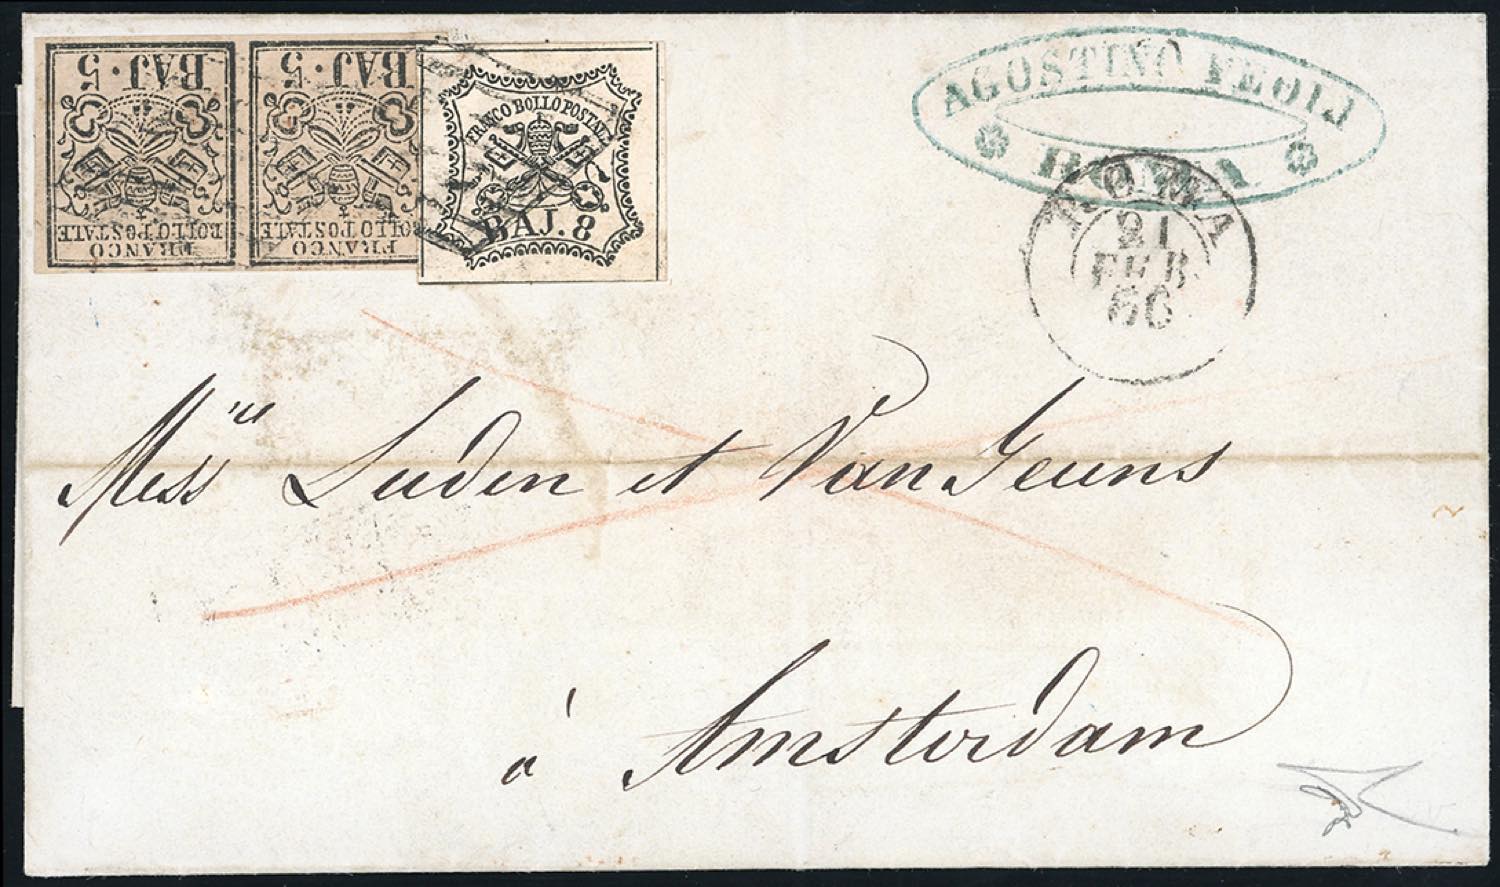 BAJ. 5
FRANCO
BOLLO POSTALE
BAJ. 5
FRANCO
BOLLO POSTALE
FRANCO BOLLO POSTALE
BAJ. 8
AGOSTINO FEOIJ
ROMA
ROMA
21
FEB
60
Mess.rs Luden et Van Geuns
à Amsterdam